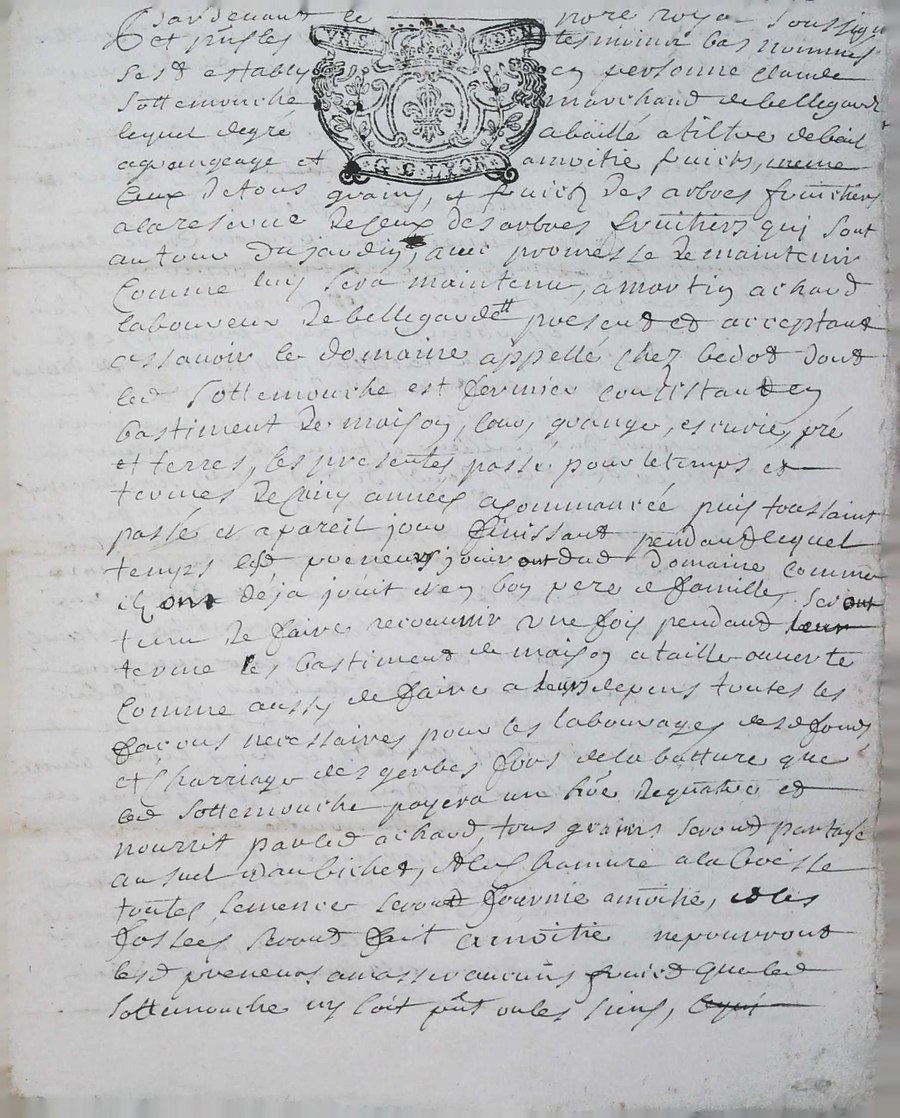 Pardevant le nore royal soussigné
et pnts les tesmoins bas nommes
s'est estably en personne claude
Sottemouche marchand de bellegarde
lequel de gré a baillé a tiltre de bail
a grangeage et a moitié fruicts, mesme
ceux de tous grains, et fruicts des arbres fruictiers
a la reserve de ceux des arbres fruitiers qui sont
autour du jardin, avec promesse de maintenir
comme luy sera maintenu, a martin achard
laboureur de bellegarde present et acceptant
assavoir le domaine appellé chez bedot dont
led Sottemouche est fermier consistant en
bastiment de maison, cour, grange, escurie, pré
et terres, les presentes passé pour le temps et
termes de cinq années a commancée puis toussaint
passé et a pareil jour finissant pendant lequel
temps lesd preneurs jouiront dud domaine comme
ils ont déja jouit et en bon pere de famille, seront
tenu de faire recouvrir une fois pendant leur
terme les bastiment de maison a taille ouverte
comme aussy de faire a leurs depens toutes les
façons necessaires pour les labourages desd fonds
et charriage des gerbes fors de la batture que
led Sottemouche payera un tiers de quatre et
nourrit par led achard, tous grains seront partagé
au suel et au bichet, et les chanure a la
toutes semences seront fournie a moitié, et les
fossées seront fait a moitié ne pourront
lesd preneurs amasser aucuns fruict que led
Sottemouche n'y soit pnt ou les siens,
VNG DEN
G.C.LYON